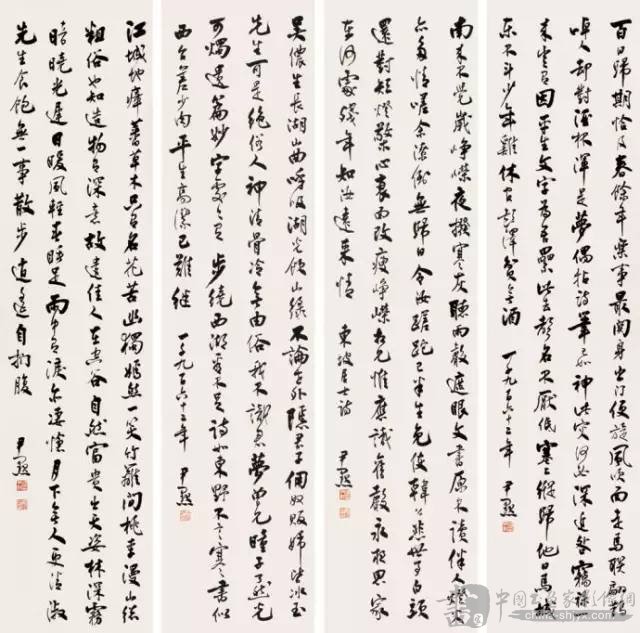 百日歸期恰及春餘年樂事最關身出門便旋風吹面走馬聯翩鵲
啅人卻對酒杯渾是夢偶拈詩筆已如神此灾何必深追咎竊祿從
來豈有因平生文字為吾累此去聲名不厭低塞上縱歸他日馬城
東不斗少年雞休官彭澤貧無酒 一千九百六十三年 尹默
南來不覺歲崢嶸夜撥寒灰聽雨聲遮眼文書原不讀伴人燈火
亦多情嗟余潦倒無歸日今汝蹉跎已半生免使韓公悲世事白頭
還對短燈檠心衰面改瘦崢嶸相見惟應識舊聲永夜思家
在何處殘年知汝遠來情 東坡居士詩 尹默
吳儂生長湖山曲呼吸湖光飲山綠不論世外隱君子傭奴販婦皆冰玉
先生可是絕俗人神清骨冷無由俗我不識君夢曾見瞳子了然光
可燭遺篇妙字處處有步繞西湖看不足詩如東野不言寒書似
西臺差少肉平生高潔已難繼 一千九百六十三年 尹默
江城地瘴蕃草木只有名花苦幽獨嫣然一笑竹籬間桃李漫山總
粗俗也知造物有深意故遣佳人在空谷自然富貴出天姿林深霧
暗曉光遲日暖風輕春睡足雨中有淚亦淒愴月下無人更清淑
先生食飽無一事散步逍遙自捫腹 尹默